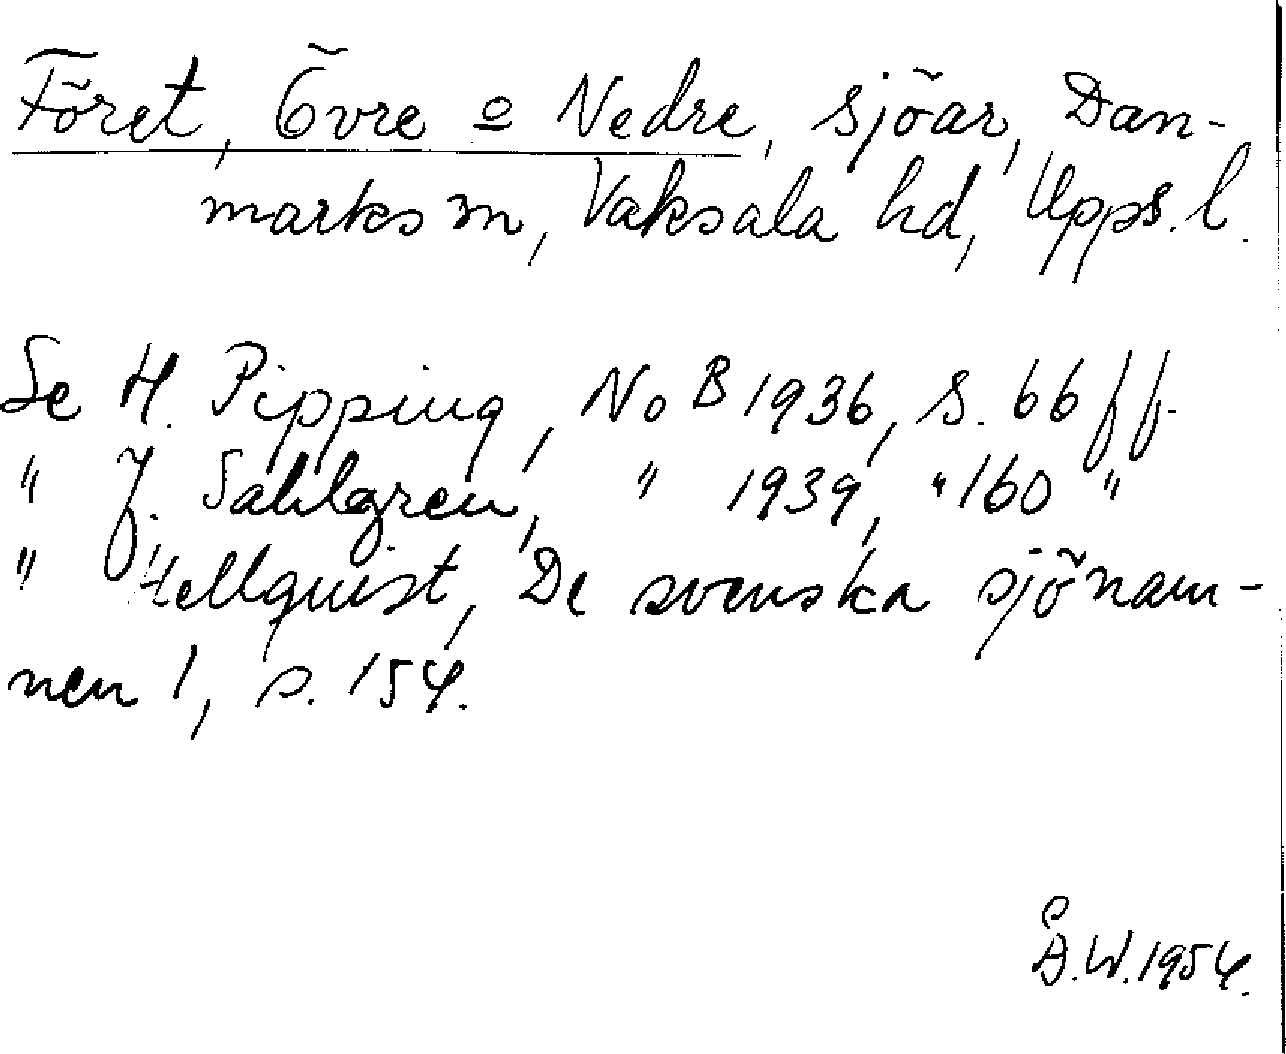 Föret, Övre o Nedre, sjöar, Dan-
marks sn, Vaksala hd, Upps. l.
Se H. Pipping, NoB 1936, s. 66 ff.
" J. Sahlgren, " 1939, " 160 "
" Hellquist, De svenska sjönam-
nen 1, s. 154.
Å.W. 1954.